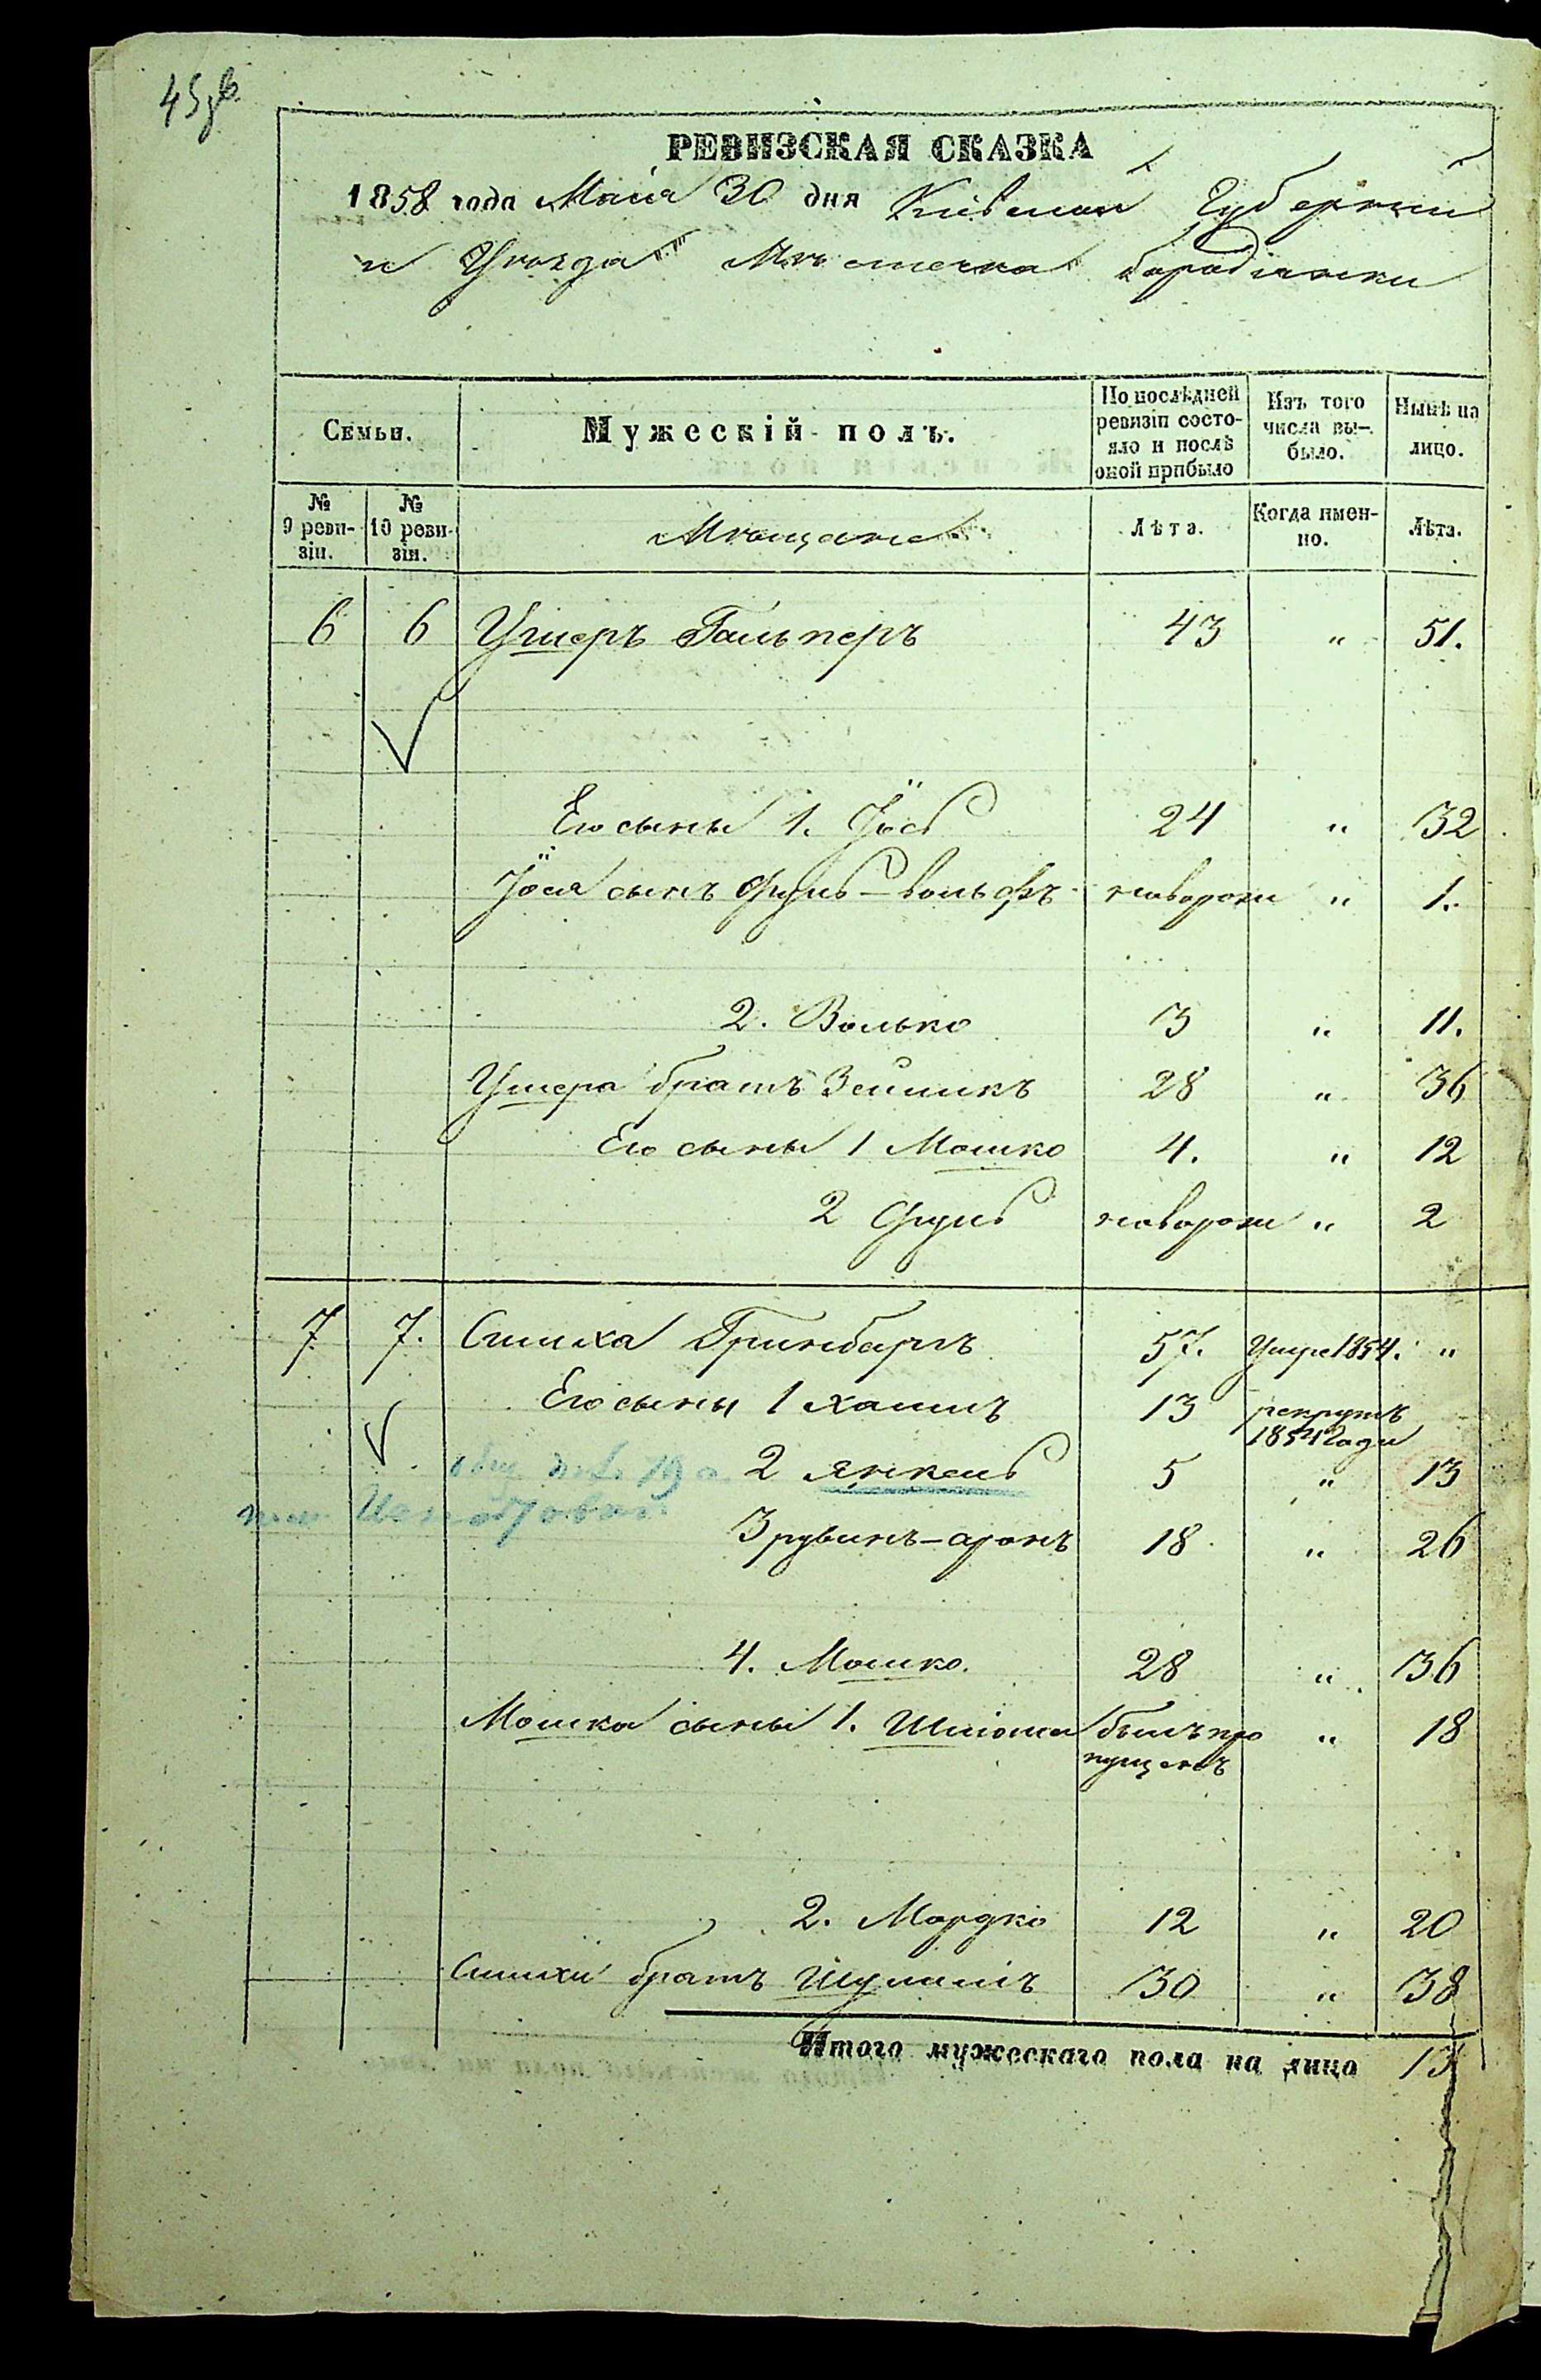 45зв
РЕВИЗСКАЯ СКАЗКА
1858 года Мая 30 дня Кіевской Губерніи
и Уѣзда Мѣстечка бородянки
Семьи.
Мужескій полъ.
По послѣдней ревизіи состояло и послѣ оной прибыло
Изъ того числа выбыло.
Нынѣ на лицо.
№ 9 ревизіи.
№ 10 ревизіи.
Мѣщане
Лѣта.
Когда именно.
Лѣта.
6 6 Ушеръ Гальперъ 43 " 51.
Его сыны 1. Іось 24 " 32
Іося сынъ Фуль-вольфъ новорож " 1.
2. Волько 3 " 11.
Ушера братъ Зейликъ 28 " 36
Его сыны 1 Мошко 4. " 12
2 новорож " 2
7 7. Симха Гринбаргъ 57. Умре 1854. "
Его сыны 1 хаимъ 13 рекрутъ 1854 года
2 янкель 5 " 13
3 рувинъ-аронъ 18 " 26
4. Мошко. 28 " 36
Мошка сыны 1. Шліома былъ пропущенъ " 18
2. Мордко 12 " 20
Симхи братъ Шулимъ 30 " 38
Итого мужескаго пола на лицо 13